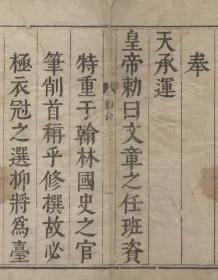 奉
天承運
皇帝勅曰文章之任班資
特重于翰林國史之官
筆削首稱乎修撰故必
極衣冠之選柳將為臺